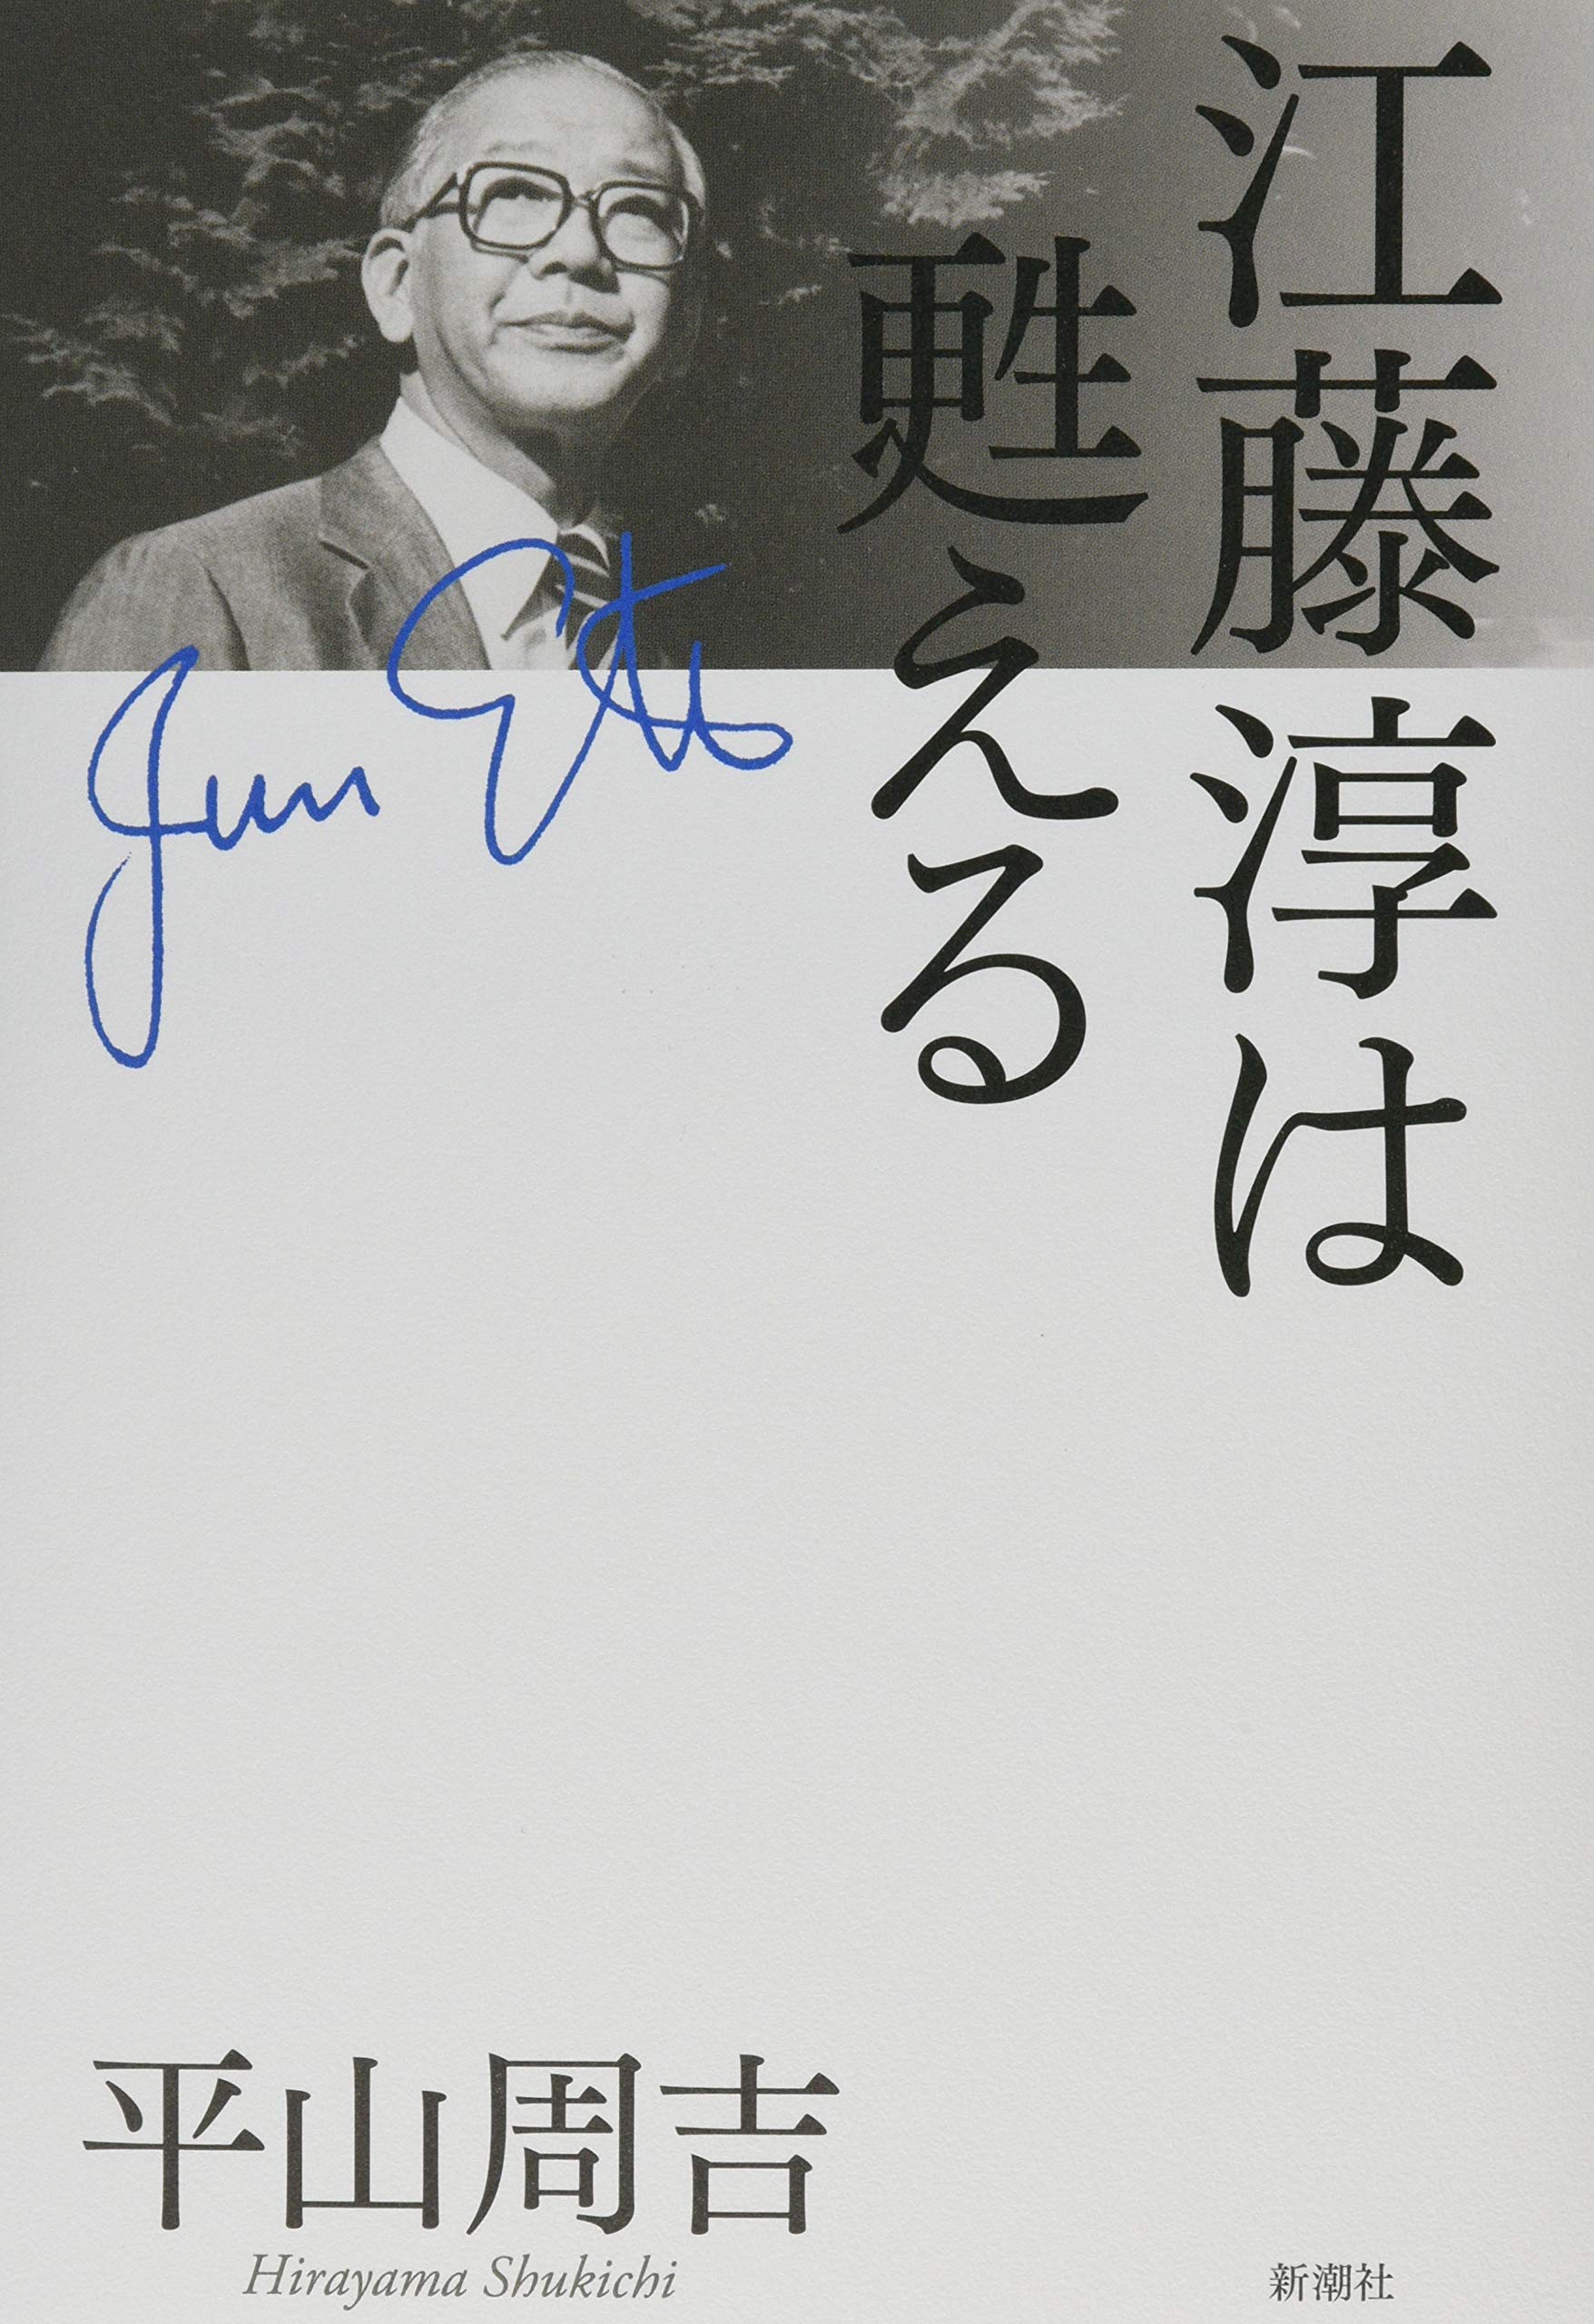 江藤淳は
甦える
Jun Eto
平山周吉
Hirayama Shukichi
新潮社